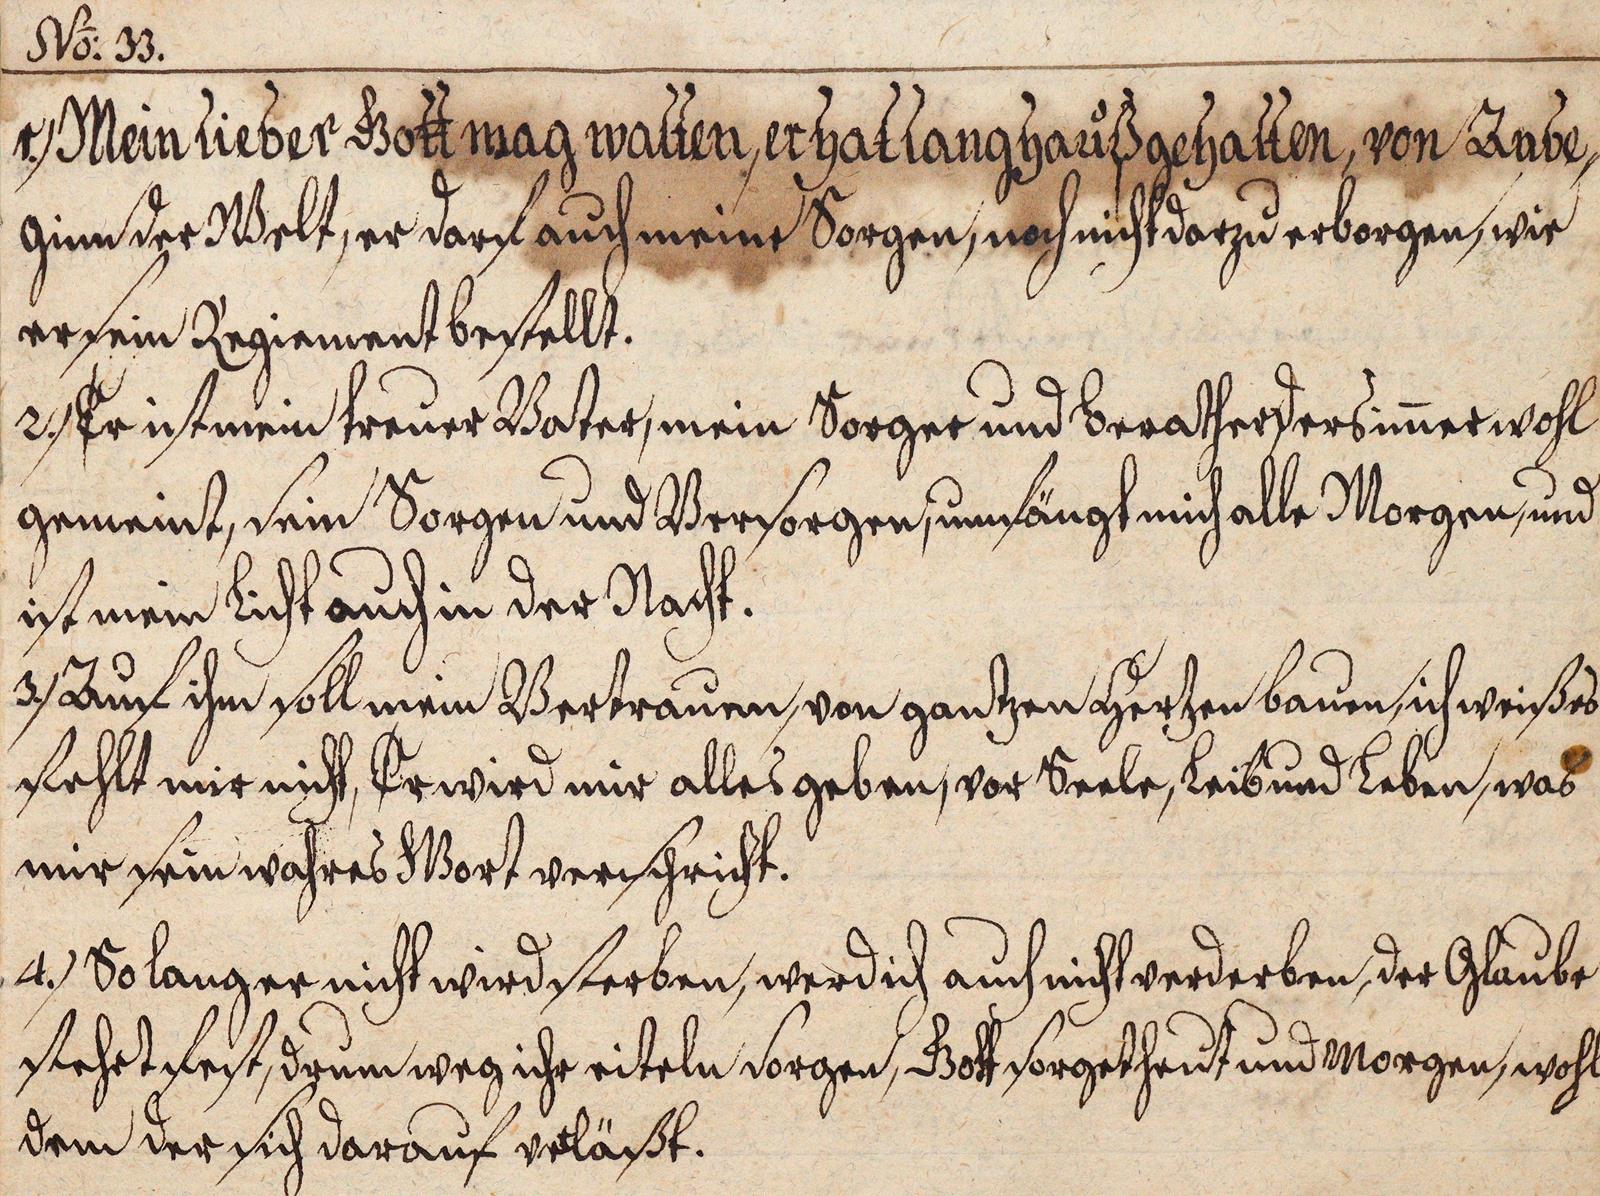 No: 33.
1./ Mein lieber Gott mag walten, er hat lang haußgehalten, von Anbe,
ginn der Welt, er darf auch meine Sorgen, noch nicht darzu erborgen, wie
er sein Regiement bestellt.
2./ Er ist mein treuer Vater, mein Sorger und Berather, ders im̅er wohl
gemeint, sein Sorgen und Versorgen, umfängt mich alle Morgen, und
ist mein Licht auch in der Nacht.
3./ Auf ihm soll mein Vertrauen, von gantzen Hertzen bauen, ich weiß es
fehlt mir nicht, Er wird mir alles geben, vor Seele, Leib und Leben, was
mir sein wahres Wort verschricht.
4./ So lang er nicht wird sterben, werd ich auch nicht verderben, der Glaube
stehet fest, drum weg ihr eiteln sorgen, Gott sorget heut und Morgen, wohl
dem der sich darauf verläßt.